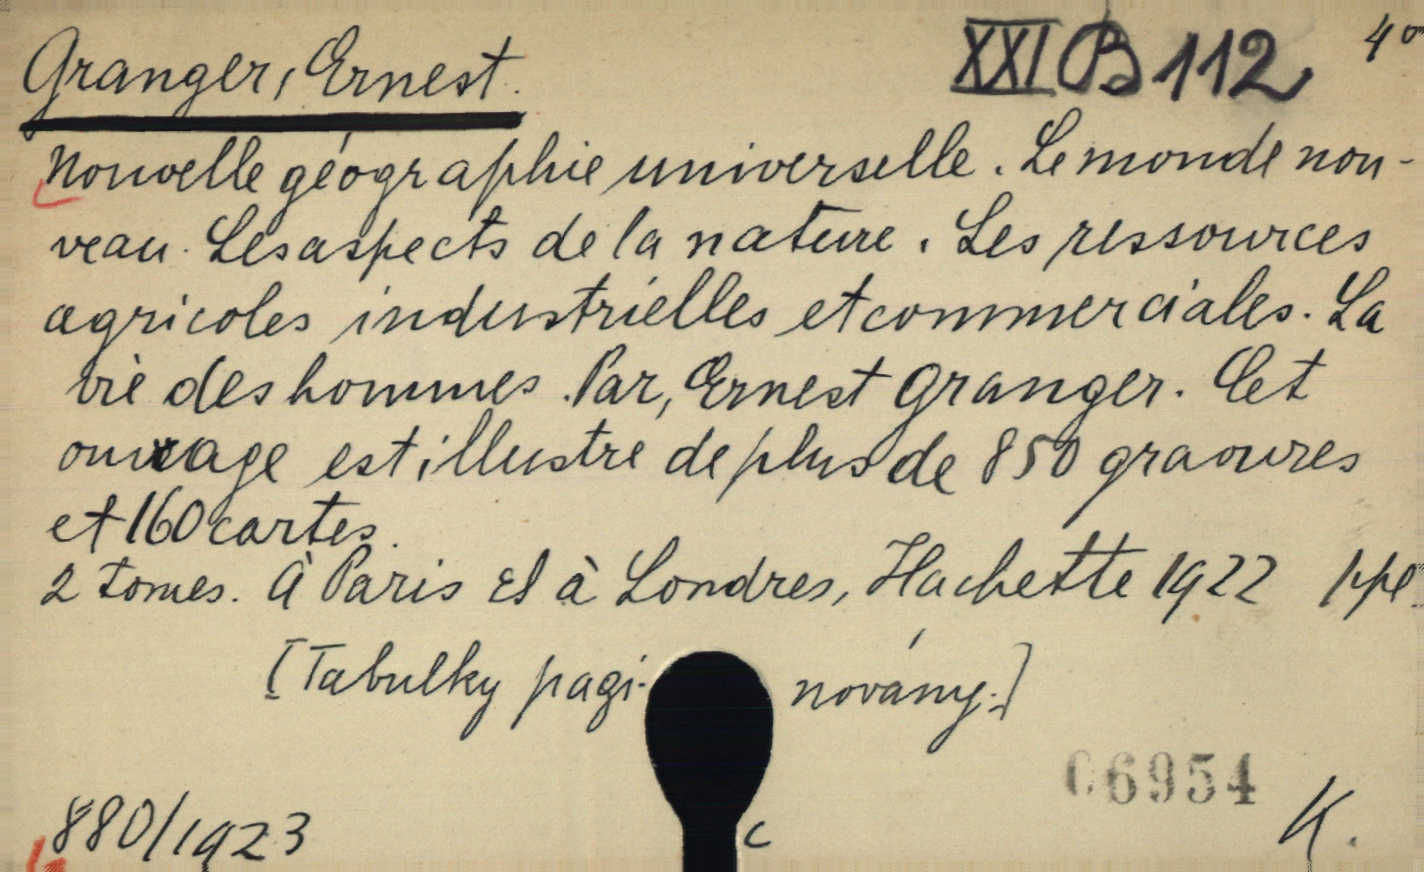 Granger, Ernest. XXI B 112 4°
Nouvelle géographie universelle. Le monde nou-
veau. Les aspects de la nature. Les ressources
agricoles industrielles et commerciales. La
vie des hommes. Par, Ernest Granger. Cet
ouvrage est illustré de plus de 850 graoures
et 160 cartes.
2 tomes. À Paris et à Londres, Hachette 1922 ppl.
[Tabulky pagi- novány.]
06954
880/1923 c K.